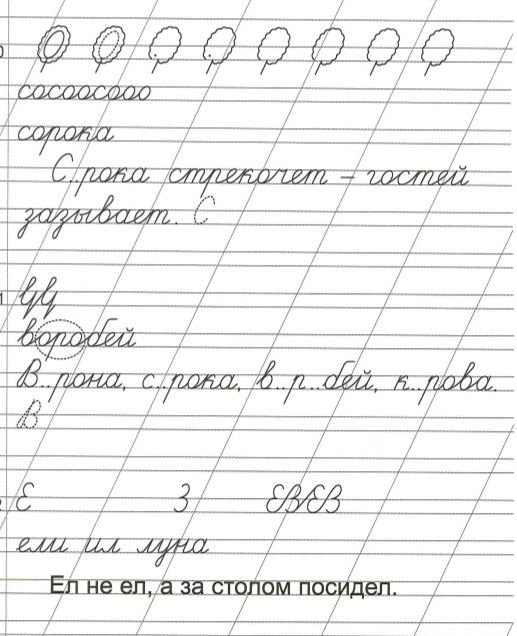 сосоосооо
сорока
С..рока стрекочет – гостей
зазывает. С
воробей
В..рона, с..рока, в..р..бей, к..рова.
В
Е З ЕВ/ЕВ
ели ил луна
Ел не ел, а за столом посидел.